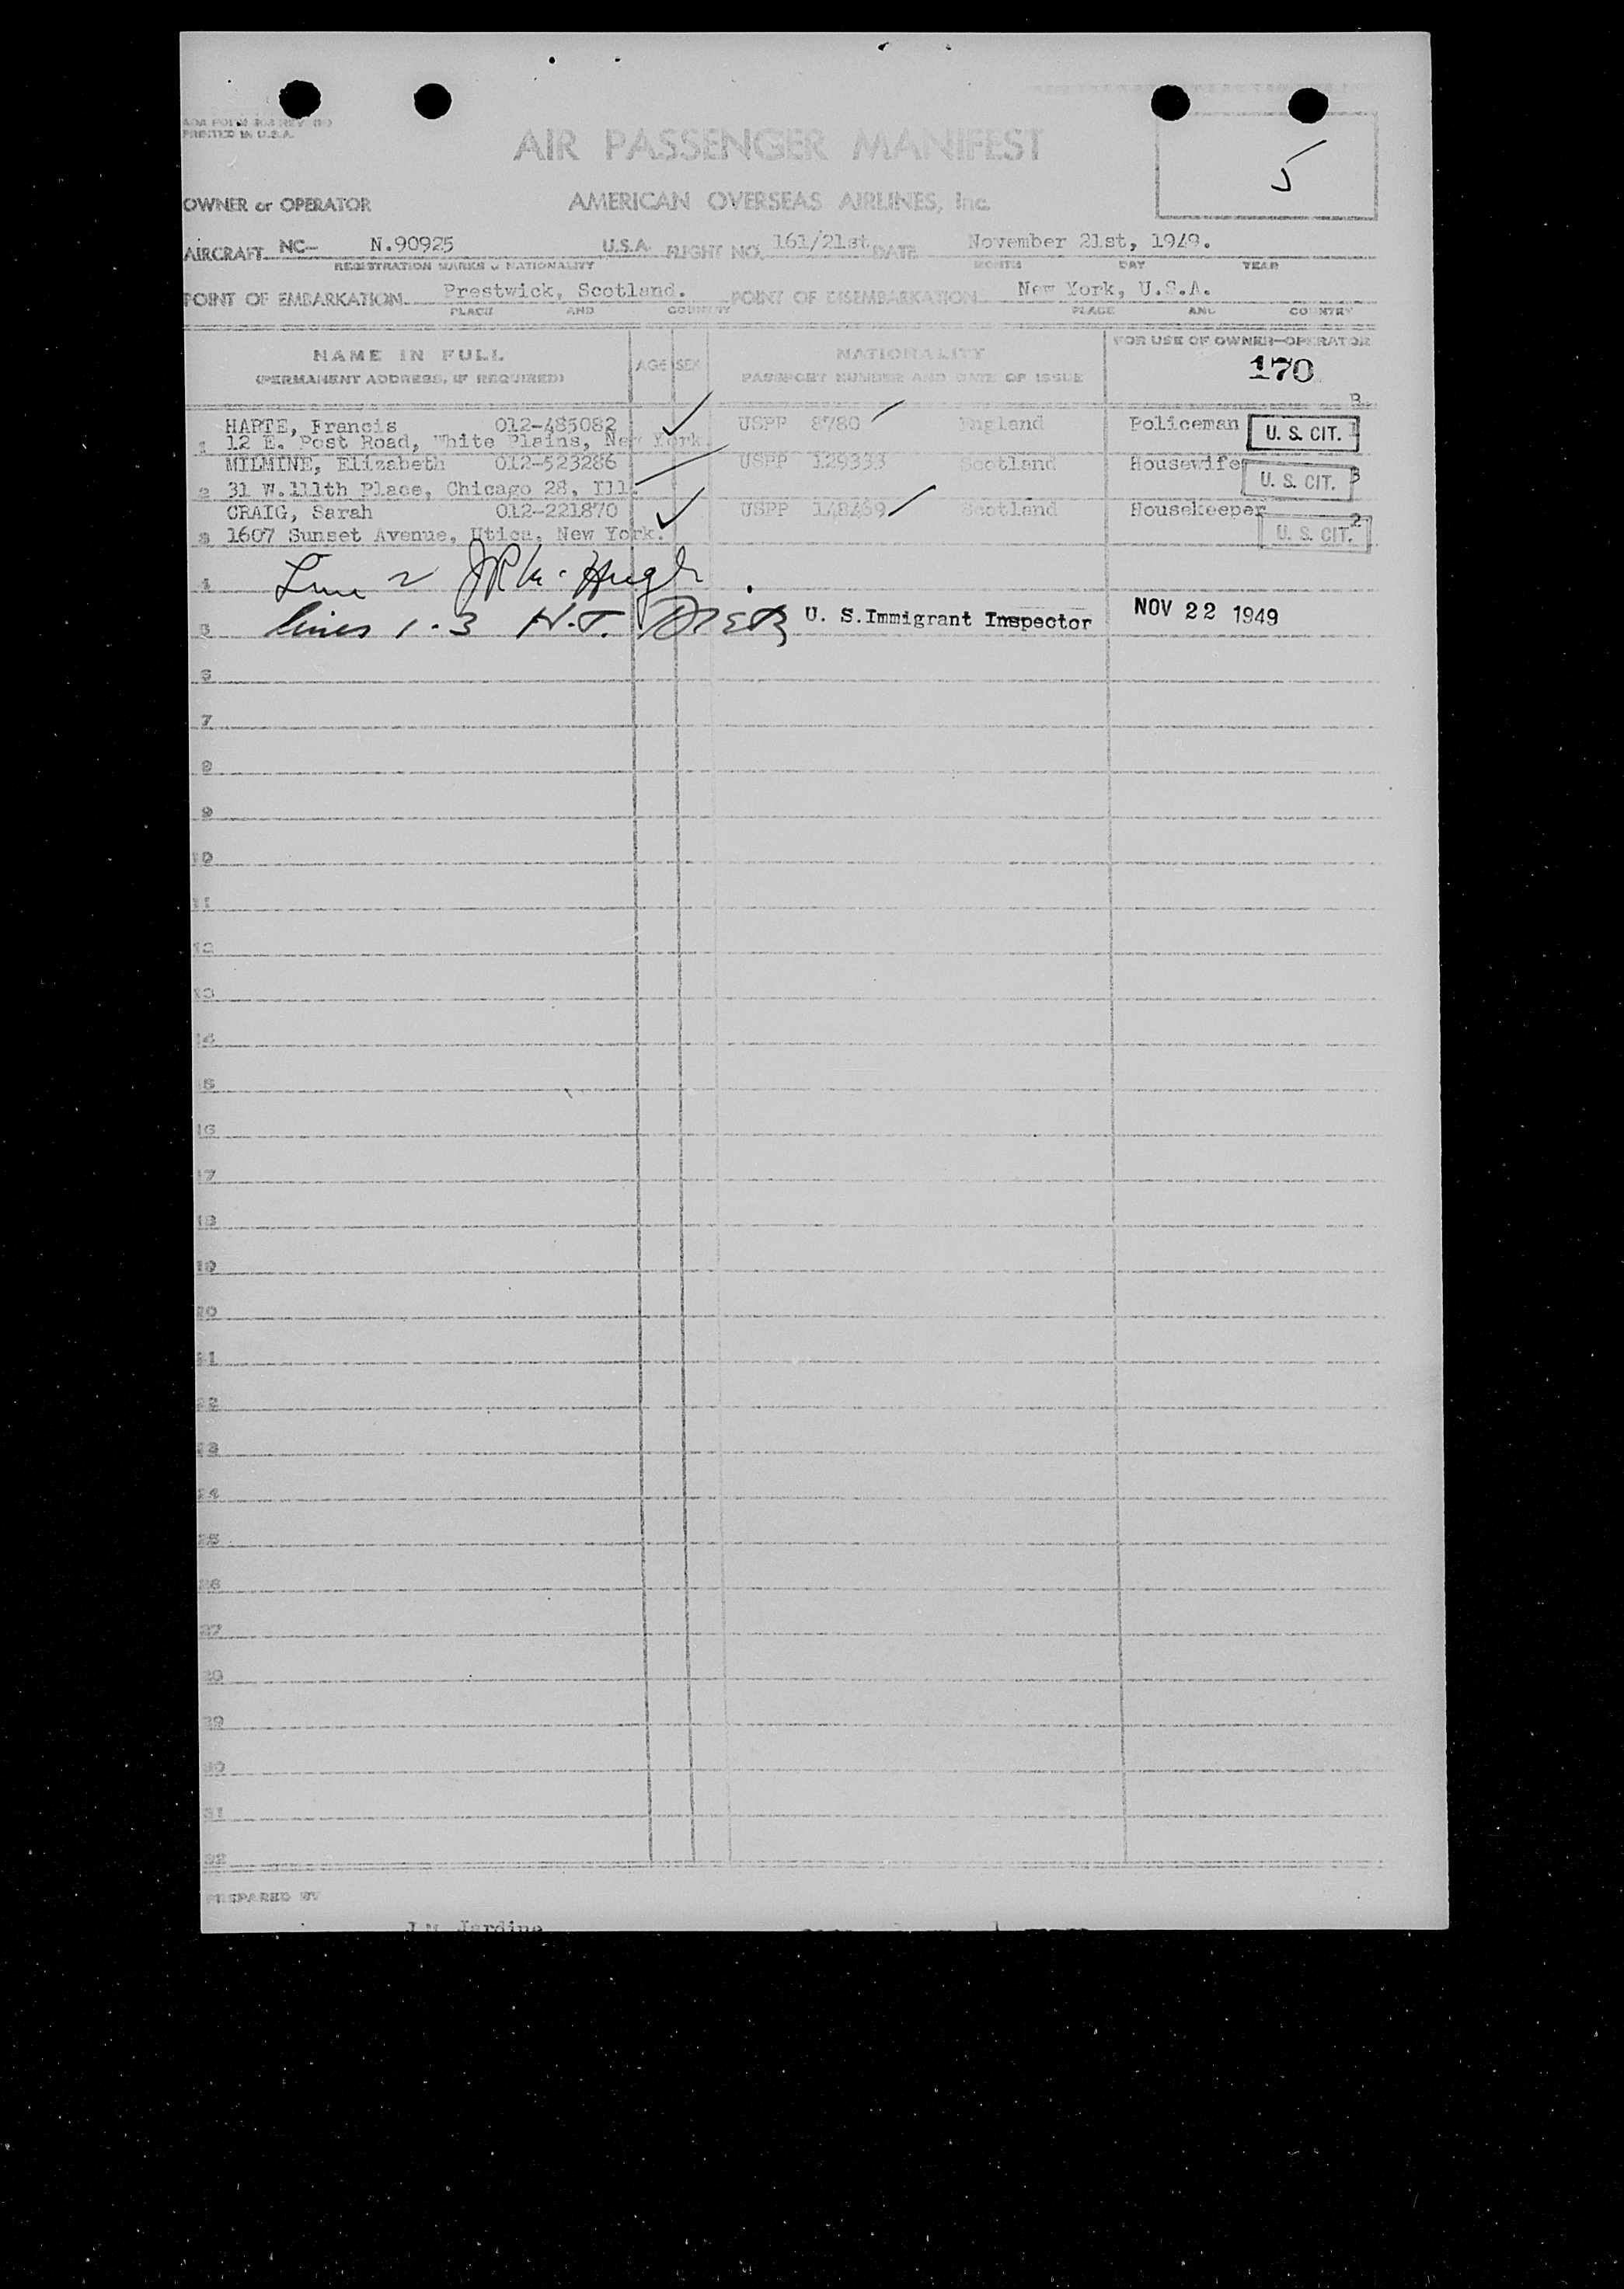 PRINTED IN U.S.A.
AIR PASSENGER MANIFEST
5
OWNER or OPERATOR AMERICAN OVERSEAS AIRLINES, Inc.
AIRCRAFT NC- N.90925 U.S.A. FLIGHT NO. 161/21st DATE November 21st, 1949.
REGISTRATION MARKS & NATIONALITY MONTH DAY YEAR
POINT OF EMBARKATION Prestwick, Scotland. POINT OF DISEMBARKATION New York, U.S.A.
PLACE AND COUNTRY PLACE AND COUNTRY
NAME IN FULL AGE SEX NATIONALITY FOR USE OF OWNER-OPERATOR
(PERMANENT ADDRESS, IF REQUIRED) PASSPORT NUMBER AND DATE OF ISSUE 170
HARTE, Francis 012-485082 USPP 8780 England Policeman U. S. CIT.
1 12 E. Post Road, White Plains, New York.
MILMINE, Elizabeth 012-523286 USPP 129333 Scotland Housewife U. S. CIT. 3
2 31 W.111th Place, Chicago 28, Ill.
CRAIG, Sarah 012-221870 USPP 148469 Scotland Housekeeper 2
3 1607 Sunset Avenue, Utica, New York. U. S. CIT.
4 Line 2 JP McHugh
5 lines 1-3 H.T. U. S. Immigrant Inspector NOV 22 1949
6
7
8
9
10
11
12
13
14
15
16
17
18
19
20
21
22
23
24
25
26
27
28
29
30
31
32
PREPARED BY
J.M. Jardine